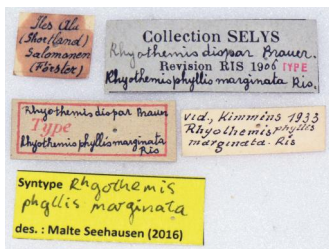 Îles Alu
(Shortland)
Salomonen
(Förster)
Collection SELYS
Rhyothemis dispar Brauer.
Revision RIS 1906 TYPE
Rhyothemis phyllis marginata Ris.
Rhyothemis dispar Brauer
Type
Rhyothemis phyllis marginata
Ris
vid, Kimmins 1933
Rhyothemis phyllis
marginata. Ris
Syntype Rhyothemis
phyllis marginata
des. : Malte Seehausen (2016)